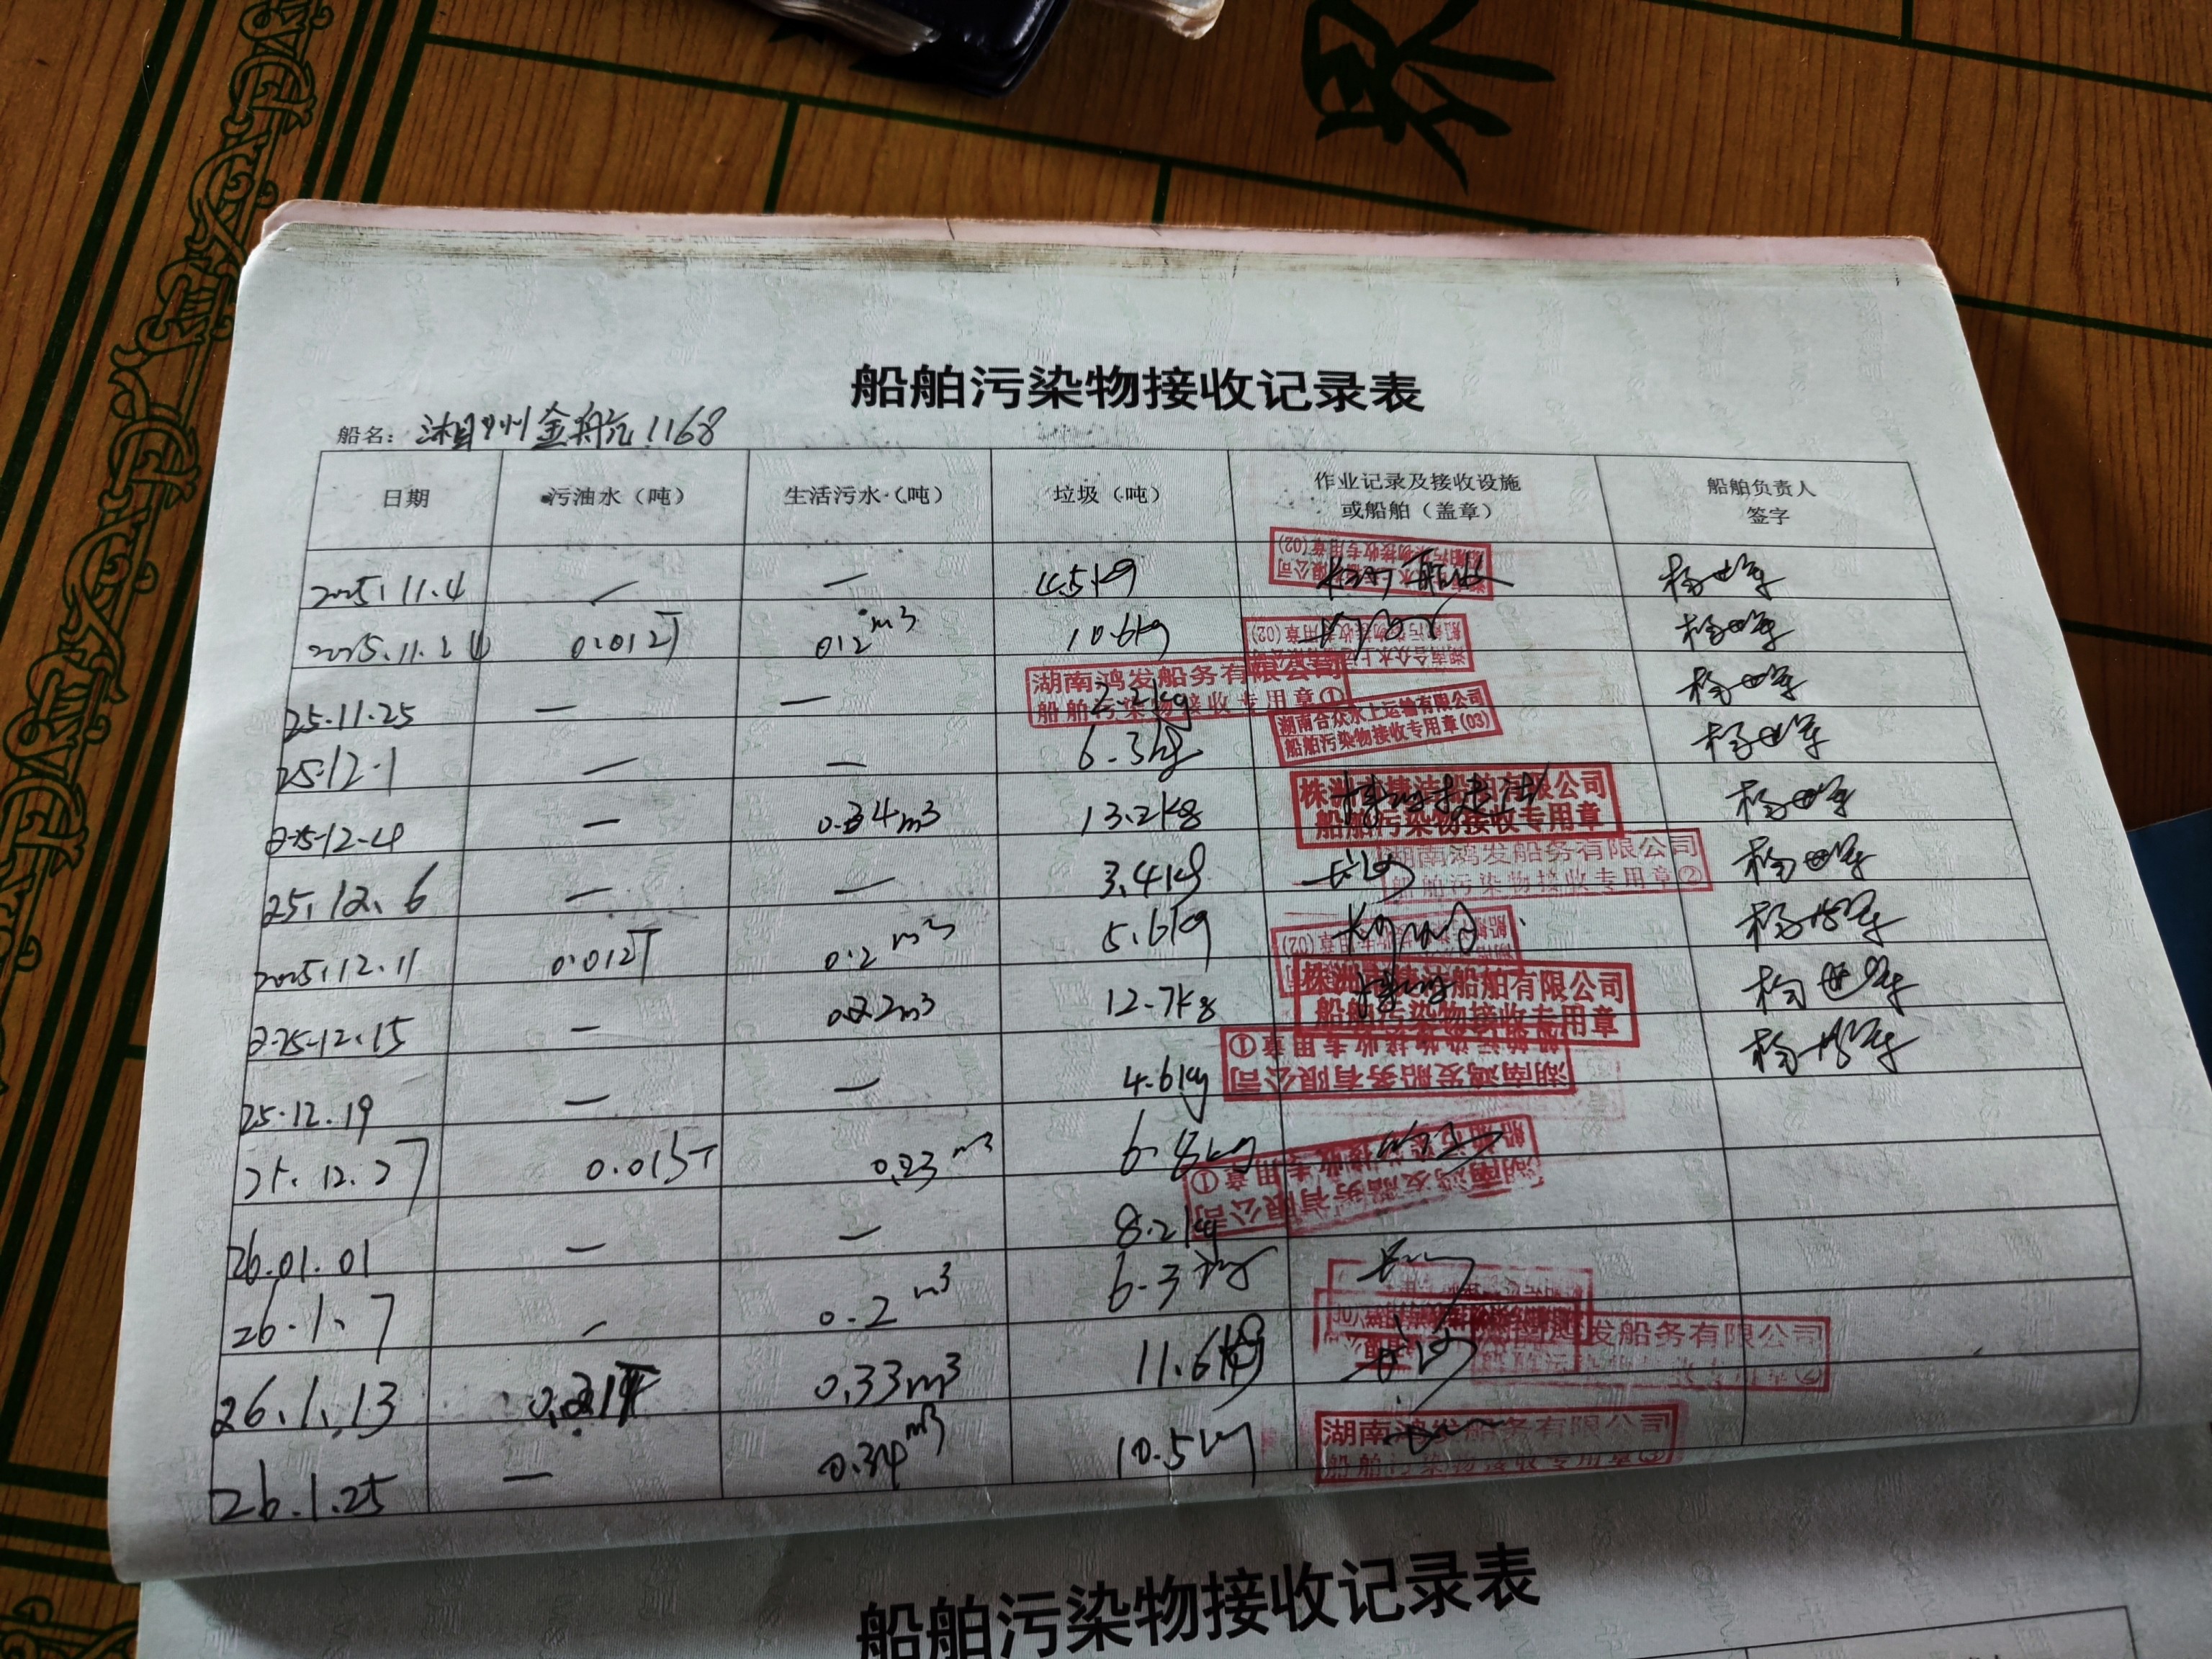 界
船舶污染物接收记录表
船名：湘株洲金航1168
日期 污油水（吨） 生活污水（吨） 垃圾（吨） 作业记录及接收设施或船舶（盖章） 船舶负责人签字
2025.11.4 — — 4.5kg
2025.11.24 0.012T 0.2m³ 10.6kg
25.11.25 — — 2.2kg 湖南鸿发船务有限公司 船舶污染物接收专用章①
25.12.1 — — 6.3kg 湖南合众水上运输有限公司 船舶污染物接收专用章(03)
2025-12-4 — 0.34m3 13.2kg 船舶有限公司 船舶污染物接收专用章
25.12.6 — — 3.4kg 湖南鸿发船务有限公司 船舶污染物接收专用章②
2025.12.11 0.012T 0.2m³ 5.6kg
2025-12.15 — 0.32m3 12.7kg 船舶有限公司 船舶污染物接收专用章
25.12.19 — — 4.6kg 湖南鸿发船务有限公司 船舶污染物接收专用章①
25.12.27 0.015T 0.23m³ 6.8kg 湖南鸿发船务有限公司 船舶污染物接收专用章①
26.01.01 — — 8.2kg
26.1.7 — 0.2m³ 6.3kg
26.1.13 0.33m3 11.6kg 鸿发船务有限公司
26.1.25 — 0.34m³ 10.5kg 湖南鸿发船务有限公司 船舶污染物接收专用章
船舶污染物接收记录表